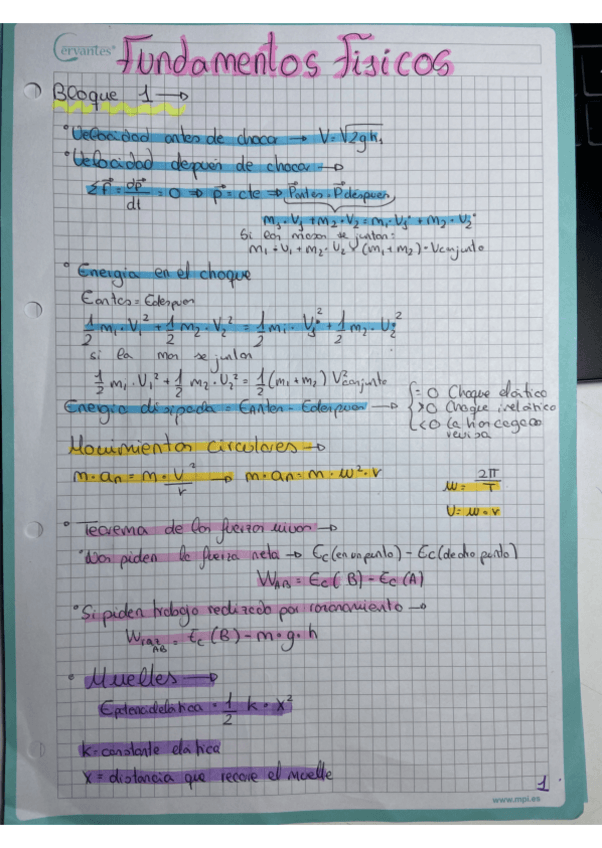 Cervantes
Fundamentos Físicos
Bloque 1 →
° Velocidad antes de chocar → V = √2gh,
° Velocidad después de chocar →
ΣF⃗ = dp⃗/dt = 0 ⇒ p⃗ = cte ⇒ P⃗antes = P⃗después
m₁·V₁ + m₂·V₂ = m₁·V₁' + m₂·V₂'
Si las masas se juntan:
m₁·V₁ + m₂·V₂ = (m₁+m₂)·Vconjunto
° Energía en el choque
Eantes = Edespués
1/2 m₁·V₁² + 1/2 m₂·V₂² = 1/2 m₁·V₁'² + 1/2 m₂·V₂'²
si la mas se juntan
1/2 m₁·V₁² + 1/2 m₂·V₂² = 1/2 (m₁+m₂) V²conjunto
Energía disipada = Eantes - Edespués →
{ = 0 Choque elástico
>0 Choque inelástico
<0 La has cagado
revisa
Movimientos circulares →
m·an = m·V²/r → m·an = m·w²·r
w = 2π/T
V = w·r
° Teorema de las fuerzas vivas →
° Nos piden la fuerza neta → Ec(en un punto) - Ec(de otro punto)
WAB = Ec(B) - Ec(A)
° Si piden trabajo realizado por rozamiento →
Wroz AB = Ec(B) - m·g·h
° Muelles →
Epotencial elástica = 1/2 k·x²
k = constante elástica
x = distancia que recore el muelle
1
www.mpi.es